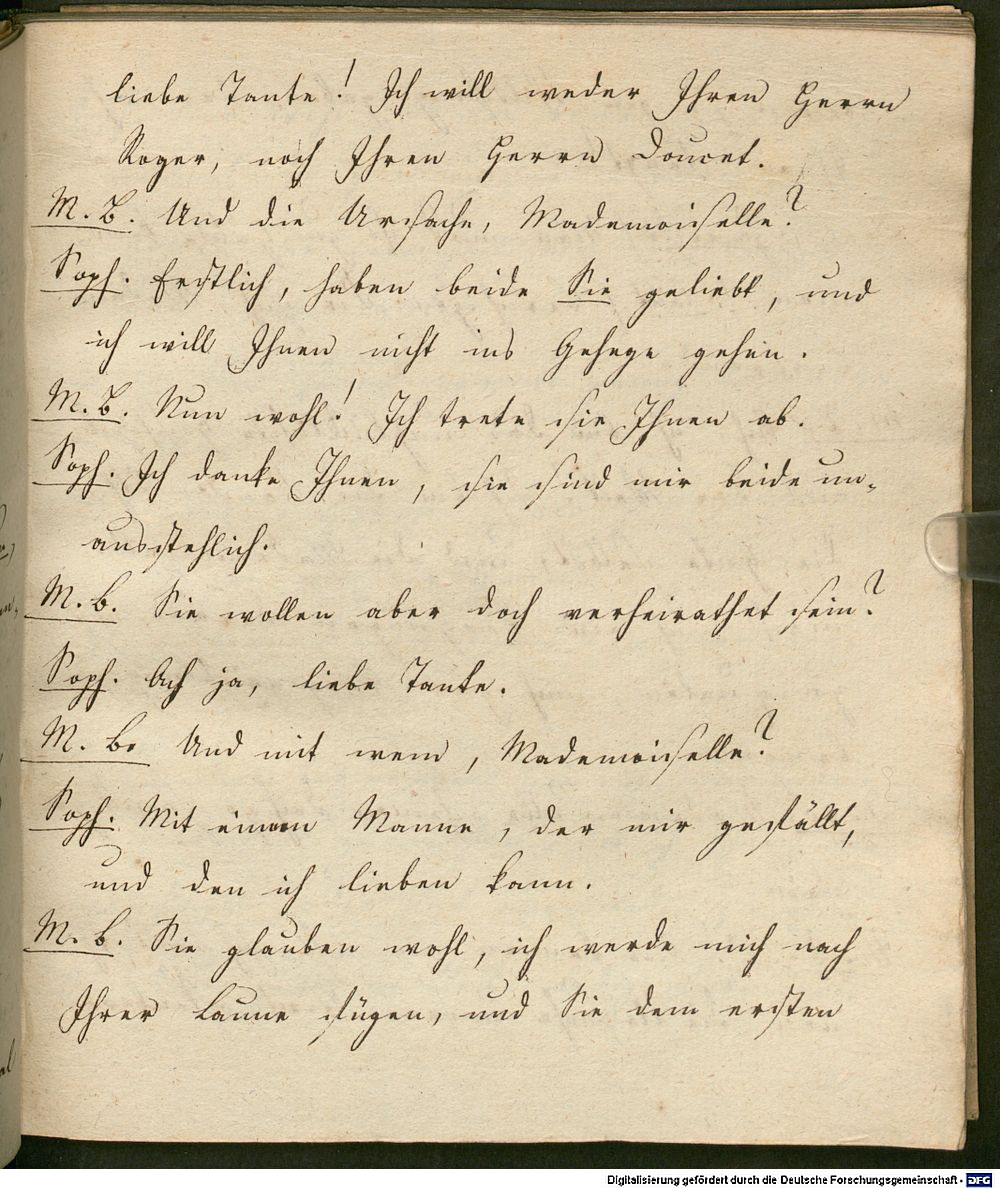 liebe Tante! Ich will weder Ihren Herrn
Roger, noch Ihren Herrn Doucet.
M. B. Und die Ursache, Mademoiselle?
Soph. Erstlich, haben beide Sie geliebt, und
ich will Ihnen nicht ins Gehege gehen.
M. B. Nun wohl! Ich trete sie Ihnen ab.
Soph. Ich danke Ihnen, sie sind mir beide un-
ausstehlich.
M. B. Sie wollen aber doch verheirathet sein?
Soph. Ach ja, liebe Tante.
M. B. Und mit wem, Mademoiselle?
Soph. Mit einem Manne, der mir gefällt,
und den ich lieben kann.
M. B. Sie glauben wohl, ich werde mich nach
Ihrer Laune fügen, und Sie dem ersten
Digitalisierung gefördert durch die Deutsche Forschungsgemeinschaft - DFG